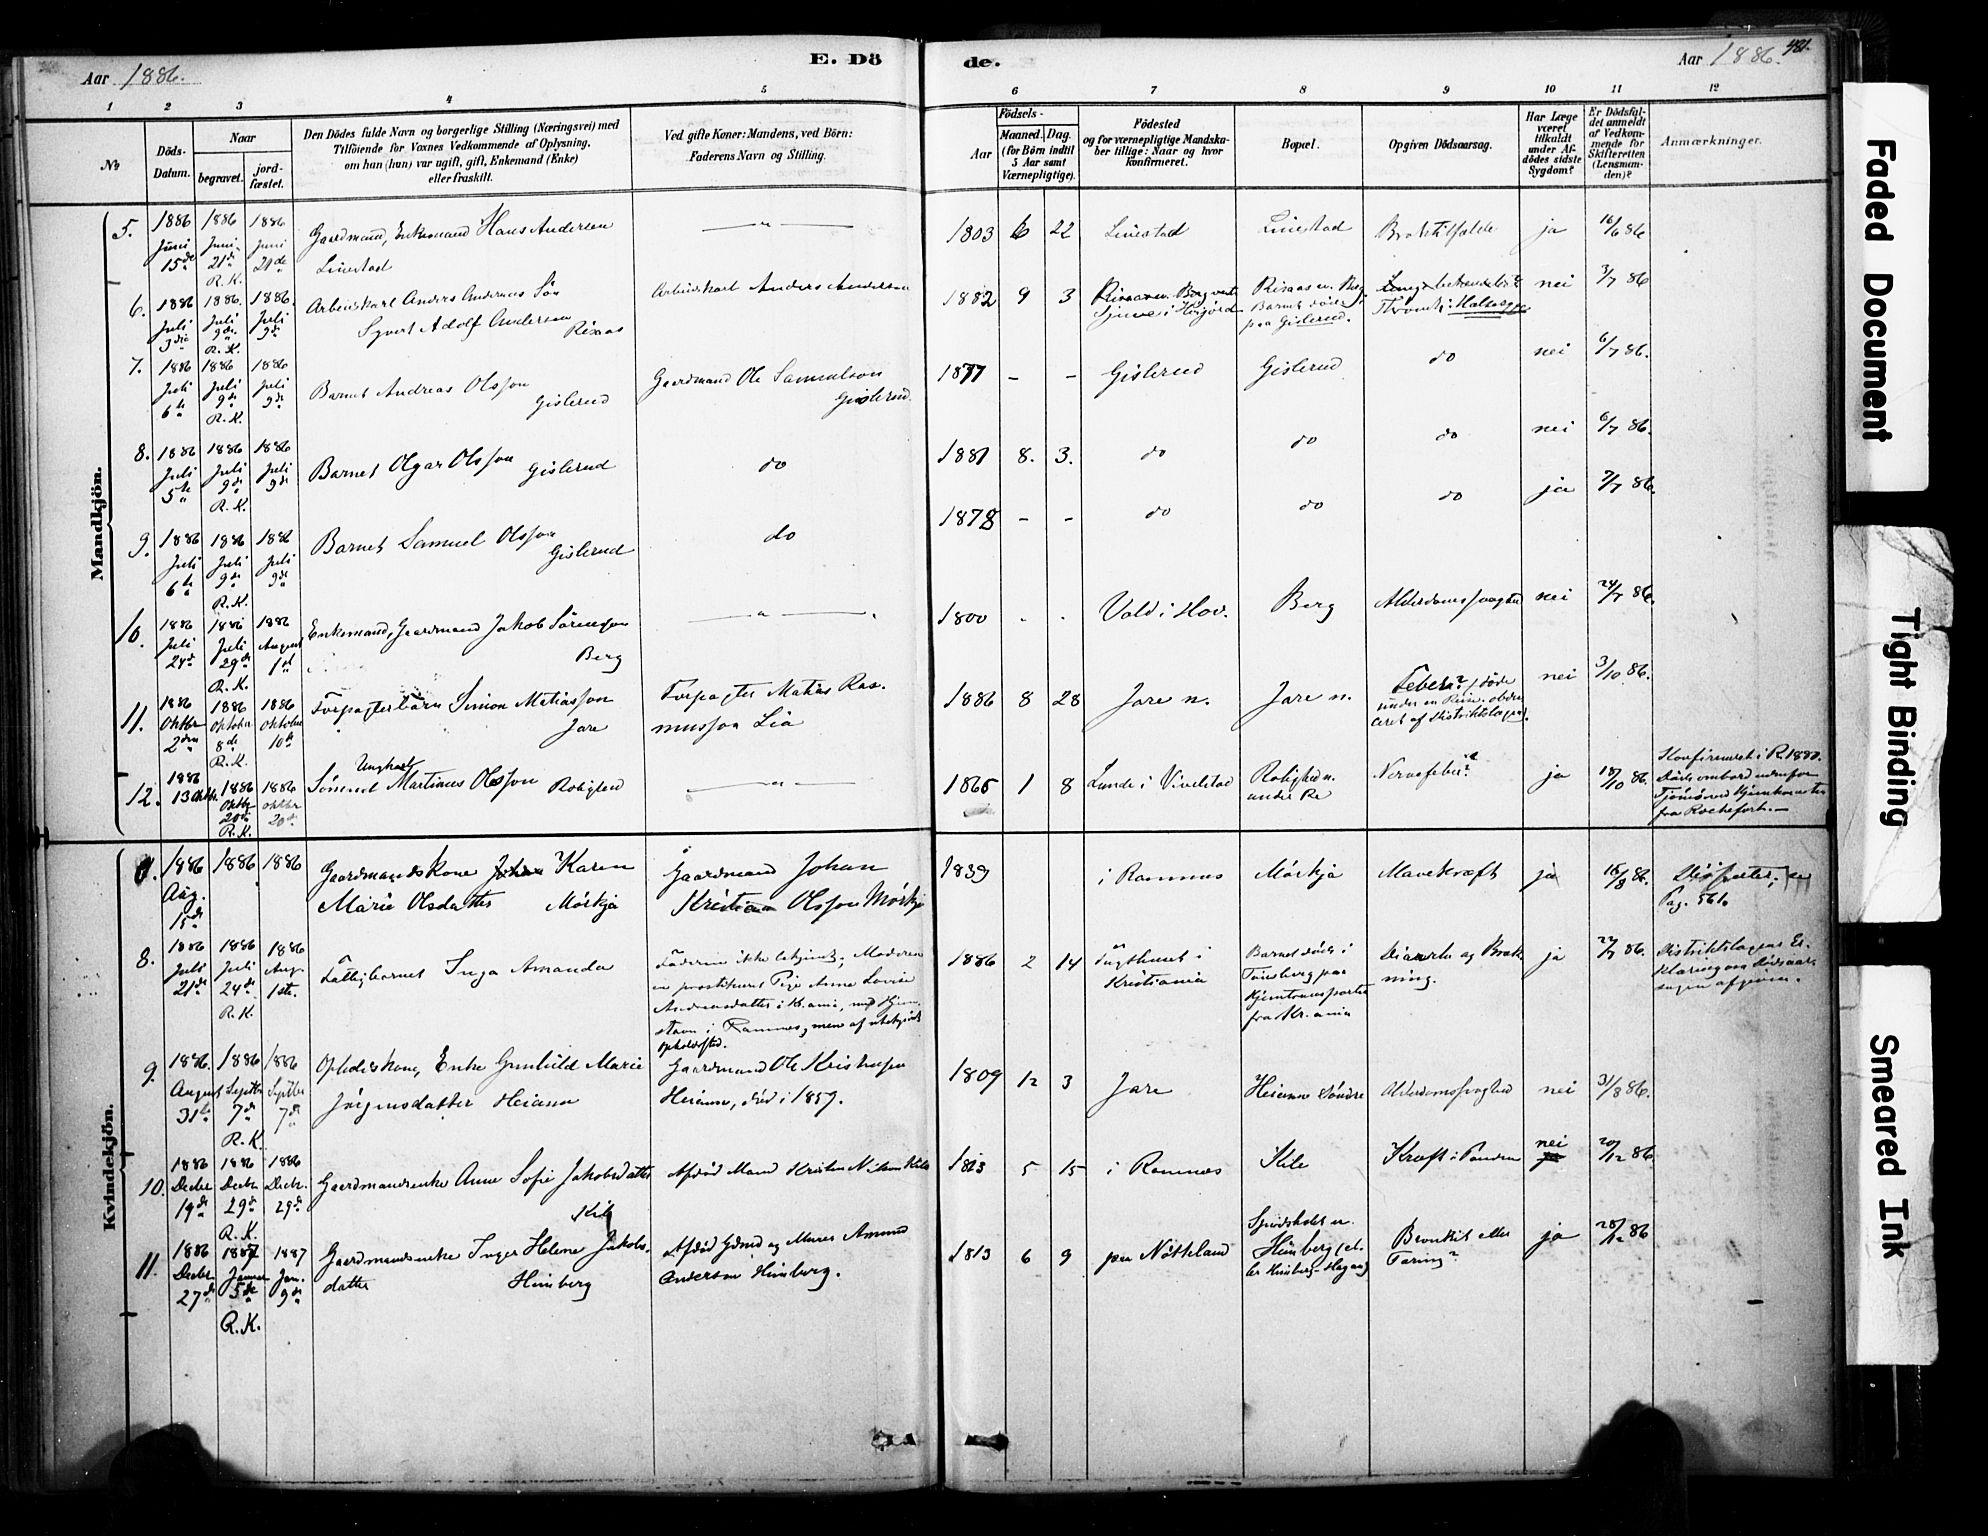 Aar 1886.
E. Dö
de.
Aar 1886.
481.
1 2 3 4 5 6 7 8 9 10 11 12
No
Döds-
Datum.
Naar
begravet.
jord-
fæstet.
Den Dödes fulde Navn og borgerlige Stilling (Næringsvei) med
Tilföiende for Voxnes Vedkommende af Oplysning,
om han (hun) var ugift, gift, Enkemand (Enke)
eller fraskilt.
Ved gifte Koner: Mandens, ved Börn:
Faderens Navn og Stilling.
Födsels-
Aar
Maaned.
Dag.
(for Börn indtil
5 Aar samt
Værnepligtige).
Födested
og for værnepligtige Mandska-
ber tillige: Naar og hvor
konfirmeret.
Bopæl.
Opgiven Dödsaarsag.
Har Læge
været
tilkaldt
under Af-
dödes sidste
Sygdom?
Er Dödsfal-
det anmeldt
af Vedkom-
mende for
Skifteretten
(Lensman-
den)?
Anmærkninger.
Mandkjön.
5.
1886
Juni
15de
1886
Juni
21de
R. K.
1886
Juni
21de
Gaardmand, Enkemand Hans Andersen
Linestad
— " —
1803 6 22 Linestad Linestad
ja 16/6 86
6.
1886
Juli
3die
1886.
Juli
9de
R. K.
1886.
Juli
9de
Arbeidskarl Anders Andersens Søn
Syvert Adolf Andersen
Rixaas
Arbeidskarl Anders Andersen
1882 9 3
Barnet døde
paa Gislerud.
nei 3/7 86
7.
1886
Juli
6te
1886
Juli
9de
R. K.
1886
Juli
9de
Barnet Andreas Olsson
Gislerud
Gaardmand Ole Samuelson
Gislerud.
1877 - - Gislerud Gislerud do nei 6/7 86.
8.
1886
Juli
5te
1886
Juli
9de
R. K.
1886
Juli
9de
Barnet Olgar Olsson
Gislerud
do
1881 8. 3. do do do nei 6/7 86.
9.
1886
Juli
6te
1886
Juli
9de
R. K.
1886
Juli
9de
Barnet Samuel Olsson
Gislerud
do
1878 - - do do do ja 7/7 86.
10.
1886
Juli
24de
1886
Juli
29de
R. K.
1886
August
1st
Enkemand, Gaardmand Jakob Sörensson
Berg
— " —
1800 Vold i Hov. Berg Alderdomssvaghed nei 24/7 86.
11.
1886
Oktbr
2den
1886
Oktober
8de
R. K.
1886
Oktober
10de
Forpagterbarn Simon Matiasson
Jare
Forpagter Matias Ras-
musson Lia
1886 8 28 Jare n. Jare n.
Feber? / døde
under en Reise, obdu-
ceret af Distriktslægen).
nei 3/10 86.
12.
1886
13 Oktbr.
1886
Oktbr
20de
R. K.
1886
Oktbr
20de
Ungkarl
Sömand Martinus Olsson Rolighed
— " —
1865 1 8 Lunde i Vivelstad
Rolighed n.
under Re
Nervefeber? ja 18/10 86.
Konfirmeret i R. 1880.
Døde ombord udenfor
Tjömö ved Hjemkomsten
fra Rochefort.—
Kvindekjön.
7.
1886
Aug.
15de
1886 1886
Gaardmandskone Karen
Marie Olsdatter Mörkja
Gaardmand Johan
Kristian Olsson Mörkja
1839 i Ramnes Mörkja Mavekræft ja 16/8 86.
Pag. 561.
8.
1886
Juli
21de
1886
Juli
24de
R. K.
1886
Aug.
1ste.
Fattigbarnet Inga Amanda
Faderen ikke bekjendt; Moderen
en prostitueret Pige Anne Lovise
Andreasdatter i Kr.ania, med Hjem-
stavn i Ramnes, men af ubekjendt
opholdssted.
1886 2 14
Tugthuset i
Kristiania
Barnet døde i
Tönsberg paa
Hjemtransporten
fra Kr.ania
Diarrhe og Bræk-
ning.
ja 22/7 86.
Distriktslægens Er-
klæring om Dødsaar-
sagen afgiven.
9.
1886.
August
31te
1886
Septbr
7de
R. K.
1886
Septbr
7de
Opholdskone, Enke Gunhild Marie
Jörgensdatter Heiann
Gaardmand Ole Kristensen
Heiann, död i 1859.
1809 12 3 Jare Heiann Söndre Alderdomssvaghed nei 31/8 86.
10.
1886
Decbr
19de
1886
Decbr
29de
R. K.
1886
Decbr.
29de
Gaardmandsenke Anne Sofie Jakobsdatter
Kile
Afdød Mand Kristen Nilsen Kile
1823 5 15 i Ramnes Kile Kræft i Panden nei 20/12 86
11.
1886
Decbr
27de
1887
Januar
5de
R. K.
1887
Jan.
9de
Gaardmandsenke Inger Helene Jakobs-
datter Himberg
Afdød Gdmd og Murer Amund
Anderson Himberg.
1813 6 9 paa Nötteland
Himberg (el-
ler Himberg-Hagan)
Bronkit eller
Tæring?
ja 28/12 86
Faded Document
Tight Binding
Smeared Ink